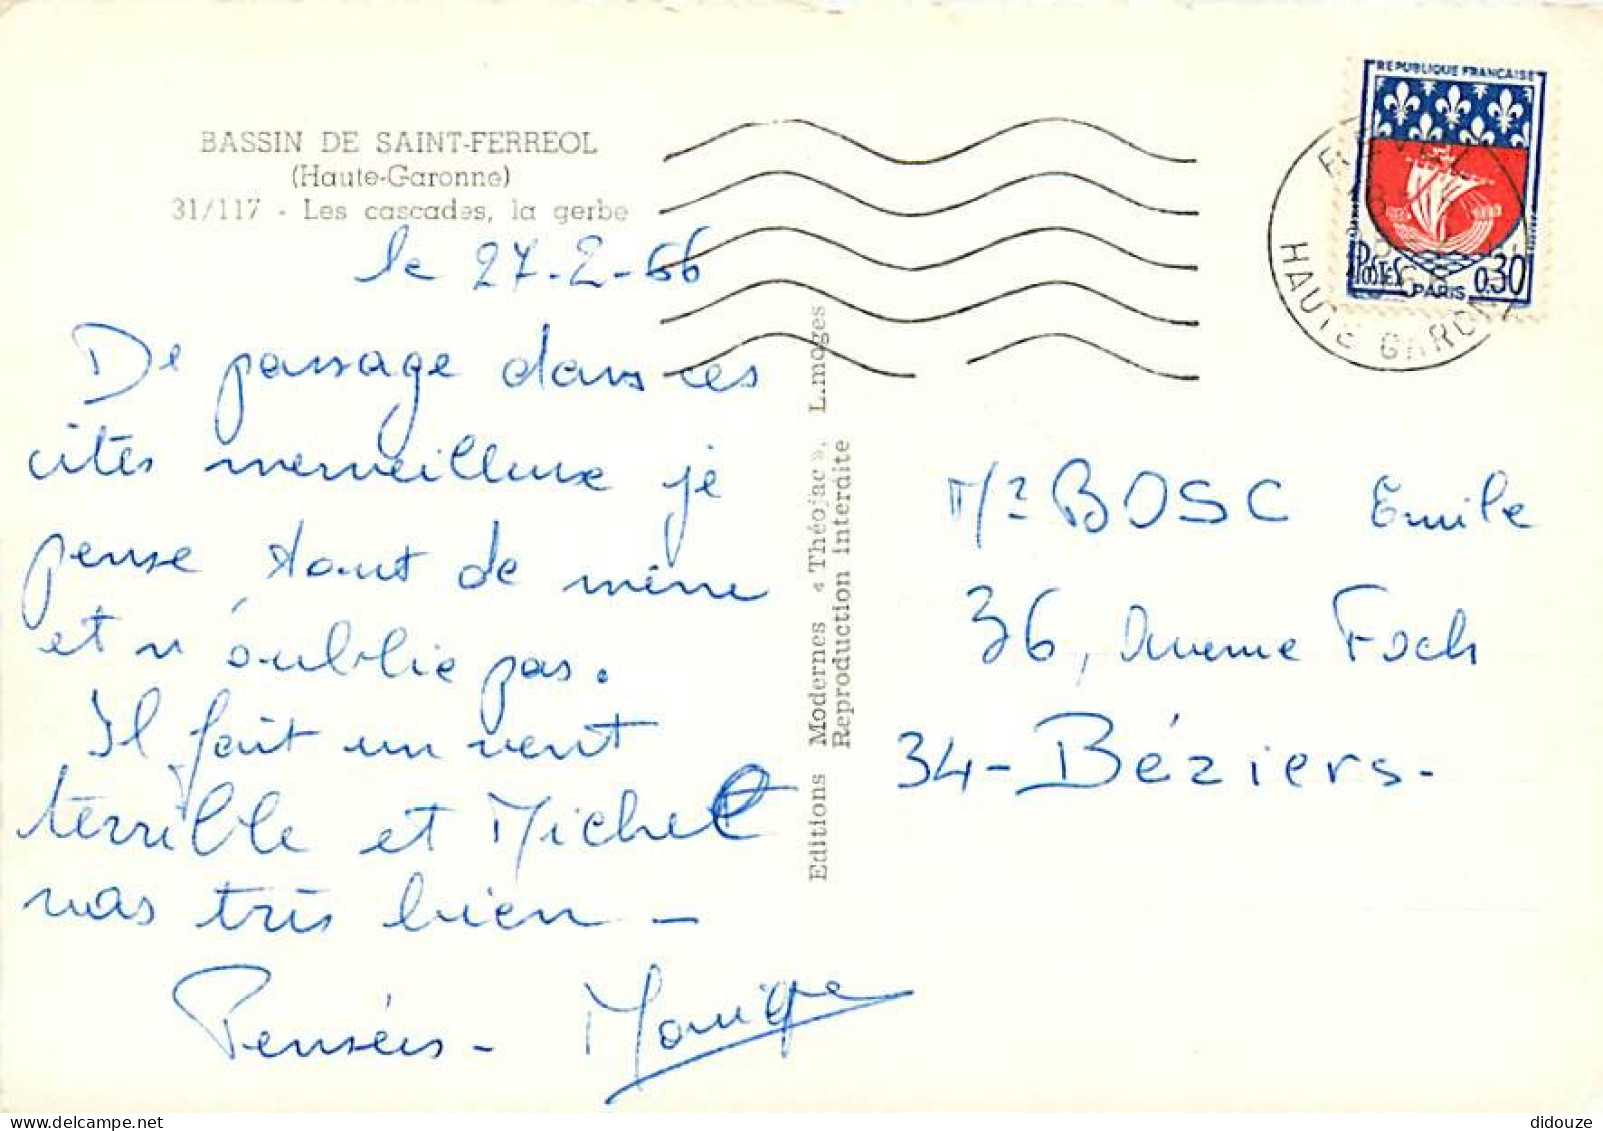 BASSIN DE SAINT-FERREOL
(Haute-Garonne)
31/117 - Les cascades, la gerbe
le 27-2-66
De passage dans ces
cités merveilleux je
pense tout de même
et n'oublie pas.
Il fait un vent
terrible et Michel
vas très bien -
Pensées - Monique
Editions Modernes « Théojac », Limoges
Reproduction interdite
REPUBLIQUE FRANÇAISE
POSTES
PARIS
0,30
REVEL
HAUTE GARONNE
Mr BOSC Emile
36, Avenue Foch
34 - Béziers -
didouze